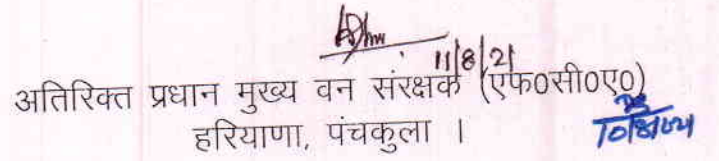 11/8/21
अतिरिक्त प्रधान मुख्य वन संरक्षक (एफ0सी0ए0)
हरियाणा, पंचकुला ।
10/8/2021